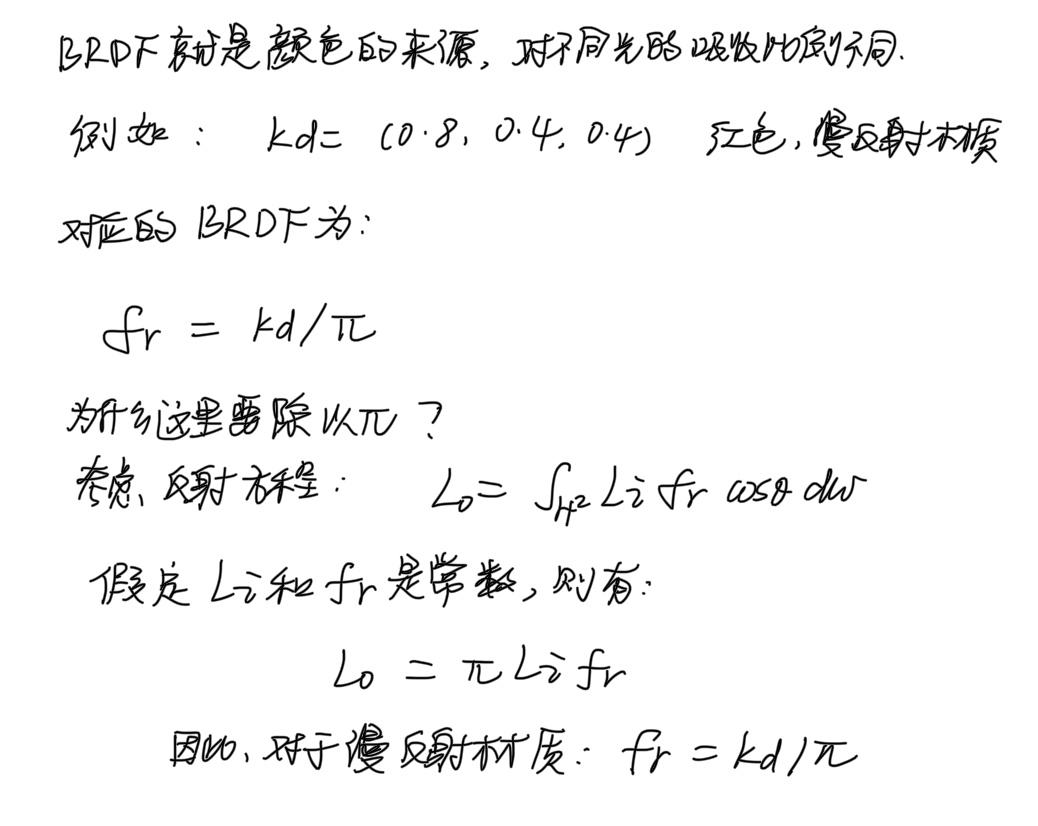 BRDF就是颜色的来源，对不同光的吸收比例不同.
例如： kd= (0.8, 0.4, 0.4) 红色，漫反射材质
对应的 BRDF为：
fr = kd/π
为什么这里要除以π？
考虑反射方程： Lo= ∫H² Li fr cosθ dw
假定 Li和fr是常数，则有：
Lo = π Li fr
因此，对于漫反射材质： fr = kd/π